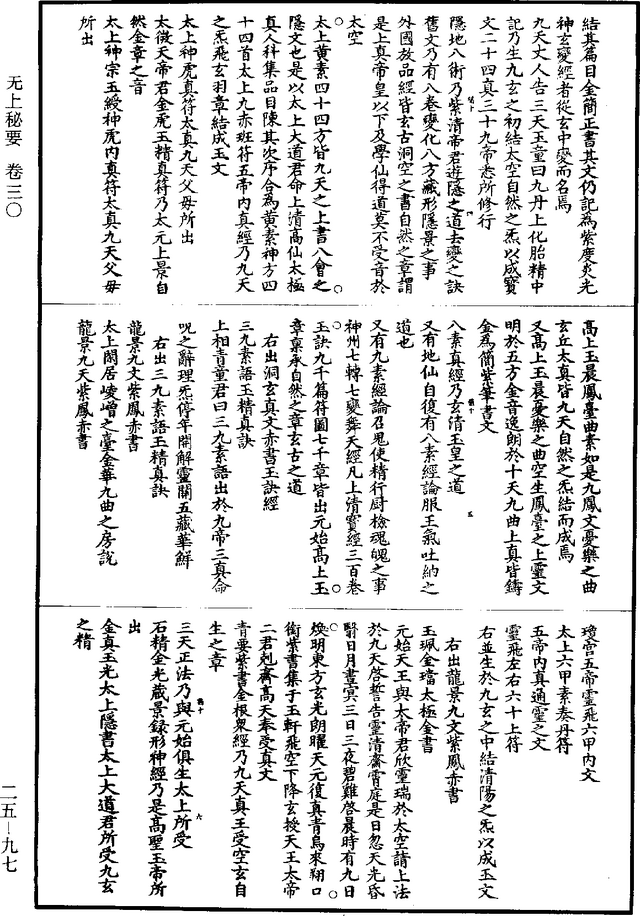 无上秘要 卷三〇
結其篇目金簡正書其文仍記為紫度炎光
神玄變經者從玄中變而名焉
九天丈人告三天玉童曰九丹上化胎精中
記乃生九玄之初結太空自然之炁以成寶
文二十四真三十九帝悉所修行
隱地八術乃紫清帝君遊隱之道去變之訣
舊文乃有八卷變化八方藏形隱景之事
外國放品經皆玄古洞空之書自然之章謂
是上真帝皇以下及學仙得道莫不受音於
太空
太上黃素四十四方皆九天之上書八會之
隱文也是以太上大道君命上清高仙太極
真人科集品目陳其次序合為黃素神方四
十四首太上九赤班符五帝內真經乃九天
之炁飛玄羽章結成玉文
太上神虎真符太真九天父母所出
太微天帝君金虎玉精真符乃太元上景自
然金章之音
太上神宗玉綬神虎內真符太真九天父母
所出
高上玉晨鳳臺曲素如是九鳳文憂樂之曲
玄丘太真皆九天自然之炁結而成焉
又高上玉晨憂樂之曲空生鳳臺之上靈文
明於五方金音逸朗於十天九曲上真皆鑄
金為簡紫筆書文
八素真經乃玄清玉皇之道
又有地仙自復有八素經論服王氣吐納之
道也
又有九素經論召鬼使精行厨檢魂魄之事
神州七轉七變舞天經凡上清寶經三百卷
玉訣九千篇符圖七千章皆出元始高上玉
章稟承自然之章玄古之道
右出洞玄真文赤書玉訣經
三九素語玉精真訣
上相青童君曰三九素語出於九帝三真命
呪之辭理炁停年開解靈關五藏華鮮
右出三九素語玉精真訣
龍景九文紫鳳赤書
太上閑居崚嶒之臺金華九曲之房說
龍景九天紫鳳赤書
瓊宮五帝靈飛六甲內文
太上六甲素奏丹符
五帝內真通靈之文
靈飛左右六十上符
右並生於九玄之中結清陽之炁以成玉文
右出龍景九文紫鳳赤書
玉珮金璫太極金書
元始天王與太帝君欣靈瑞於太空請上法
於九天啓誓告靈清齋霄庭是日忽天光昏
翳日月晝冥三日三夜碧雞啓晨時有九日
煥明東方玄光朗曜天元復真青鳥來翔口
銜紫書集于玉軒飛空下降玄授天王太帝
二君剋齋高天奉受真文
青要紫書金根眾經乃九天真王受空玄自
生之章
三天正法乃與元始俱生太上所受
石精金光藏景錄形神經乃是高聖玉帝所
出
金真玉光太上隱書太上大道君所受九玄
之精
二五—九七